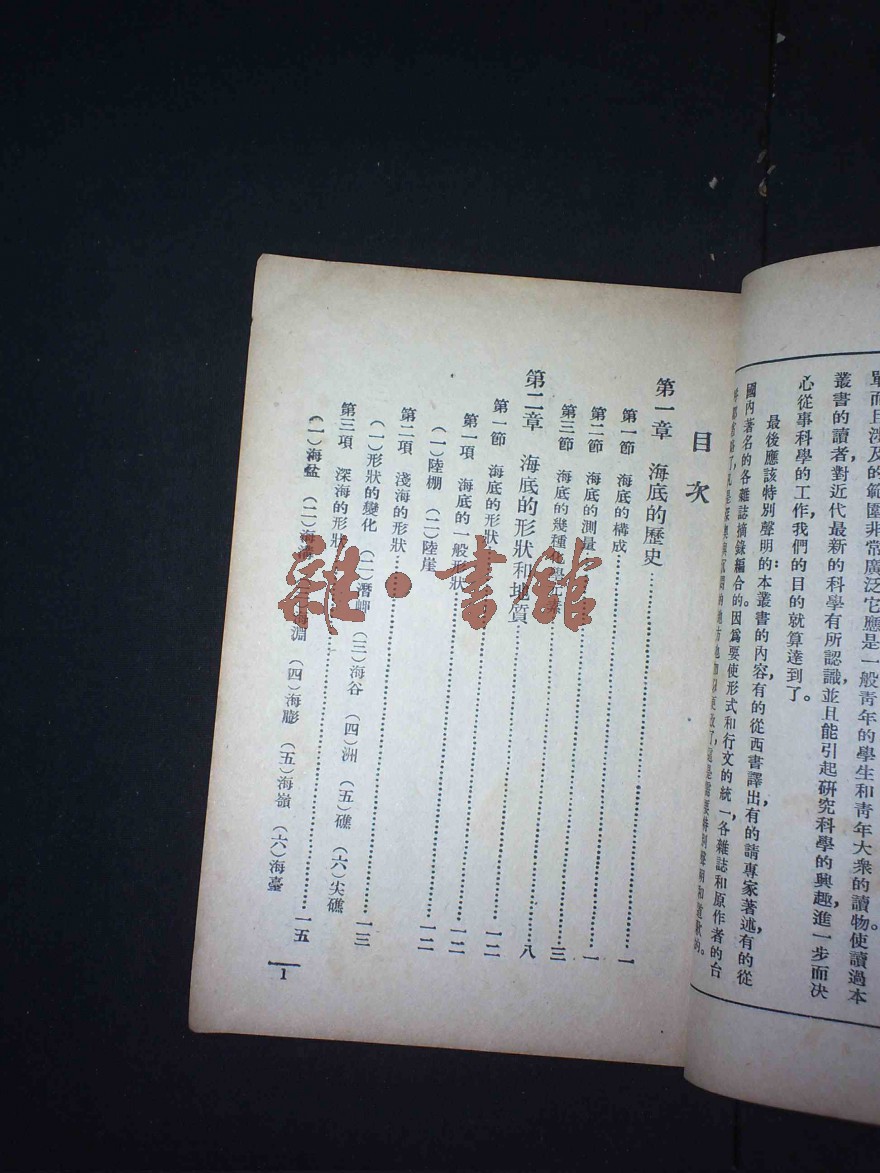 單而且涉及的範圍非常廣泛它應是一般靑年的學生和靑年大衆的讀物使讀過本
叢書的讀者，對近代最新的科學有所認識，並且能引起研究科學的興趣，進一步而決
心從事科學的工作，我們的目的就算達到了。
最後應該特別聲明的：本叢書的內容，有的從西書譯出，有的請專家著述，有的從
國內著名的各雜誌摘錄編合的。因爲要使形式和行文的統一，各雜誌和原作者的台
目次
第一章 海底的歷史
第一節 海底的構成 一
第二節 海底的測量 一
第三節 海底的幾種 三
第二章 海底的形狀和地質 八
第一節 海底的形狀 一二
第一項 海底的一般形狀 一二
（一）陸棚 （二）陸崖 一二
第二項 淺海的形狀 一三
（一）形狀的變化 （二）潛岬 （三）海谷 （四）洲 （五）礁 （六）尖礁
第三項 深海的形狀 一五
（一）海盆 （二）海 淵 （四）海膨 （五）海嶺 （六）海臺
1
雜·書館